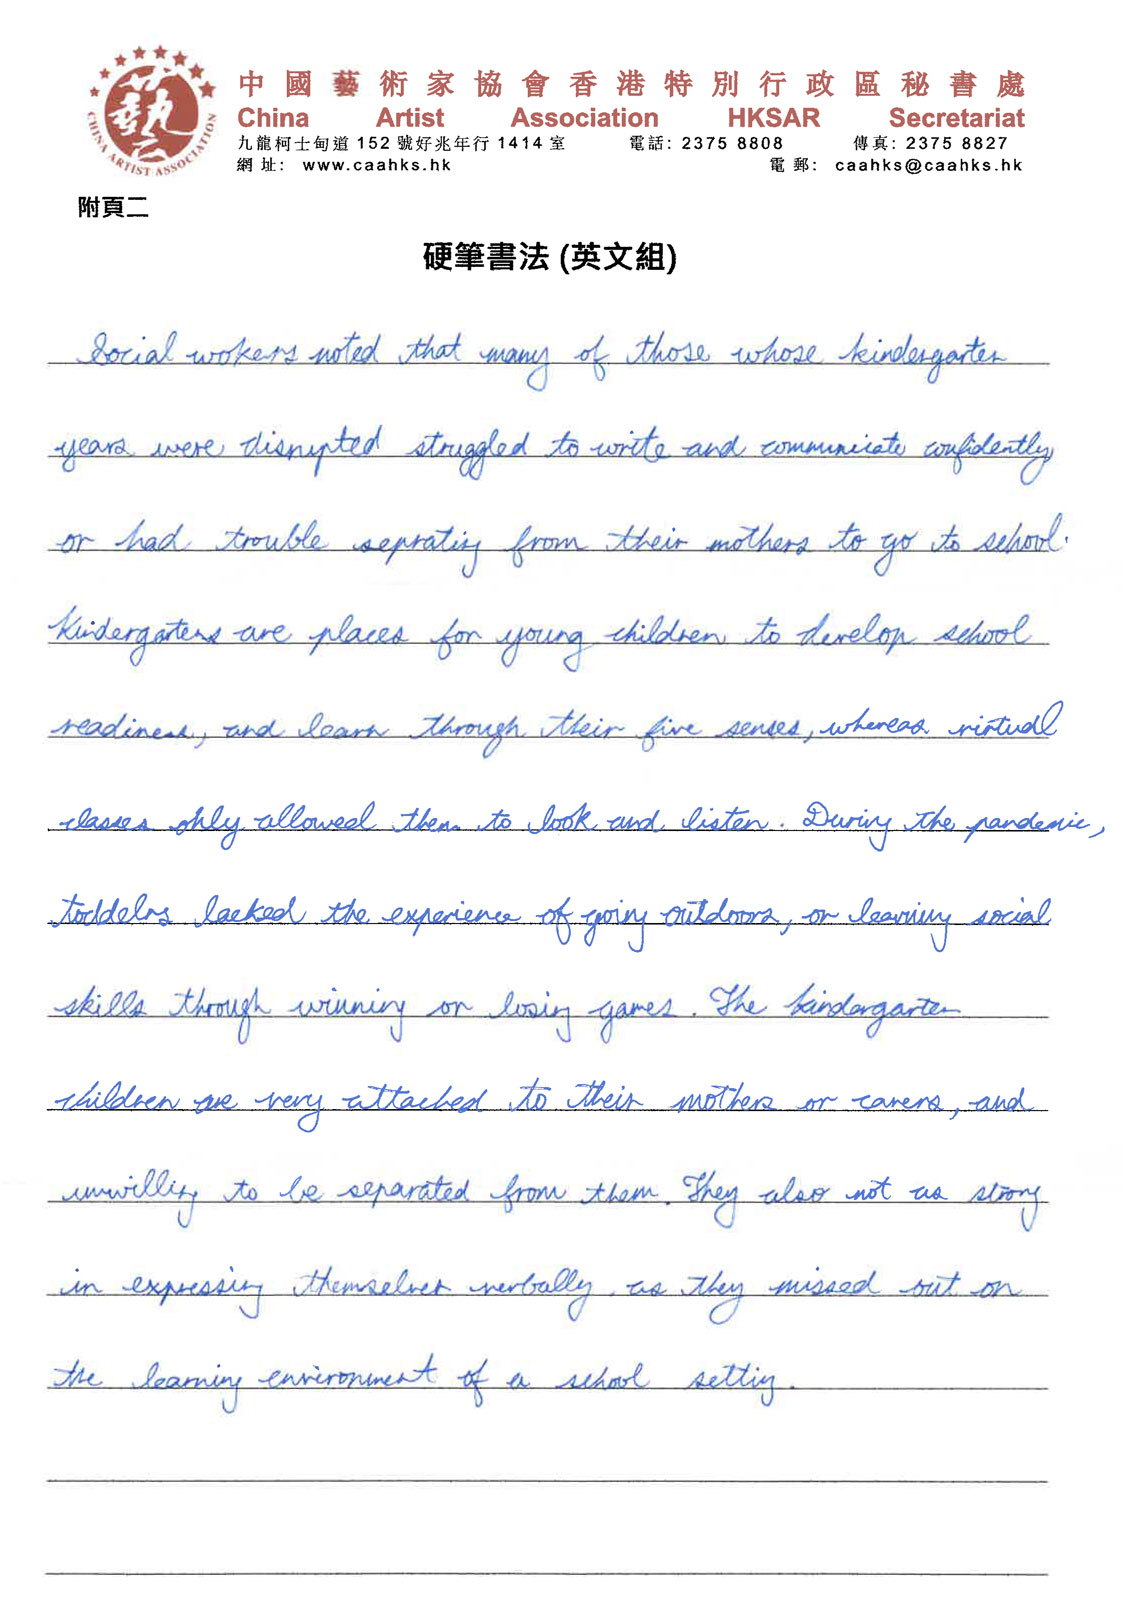 中國藝術家協會香港特別行政區秘書處
China Artist Association HKSAR Secretariat
九龍柯士甸道 152 號好兆年行 1414 室 電話: 2375 8808 傳真: 2375 8827
網址: www.caahks.hk 電郵: caahks@caahks.hk
藝
CHINA ARTIST ASSOCIATION
附頁二
硬筆書法 (英文組)
Social wokers noted that many of those whose kindergarten
years were disrupted struggled to write and communicate confidently
or had trouble seprating from their mothers to go to school.
Kindergartens are places for young children to develop school
readiness, and learn through their five senses, whereas virtual
classes only allowed them to look and listen. During the pandemic,
toddelrs lacked the experience of going outdoors, or learning social
skills through winning or losing games. The kindergarten
children are very attached to their mothers or carers, and
unwilling to be separated from them. They also not as strong
in expressing themselves verbally as they missed out on
the learning environment of a school setting.